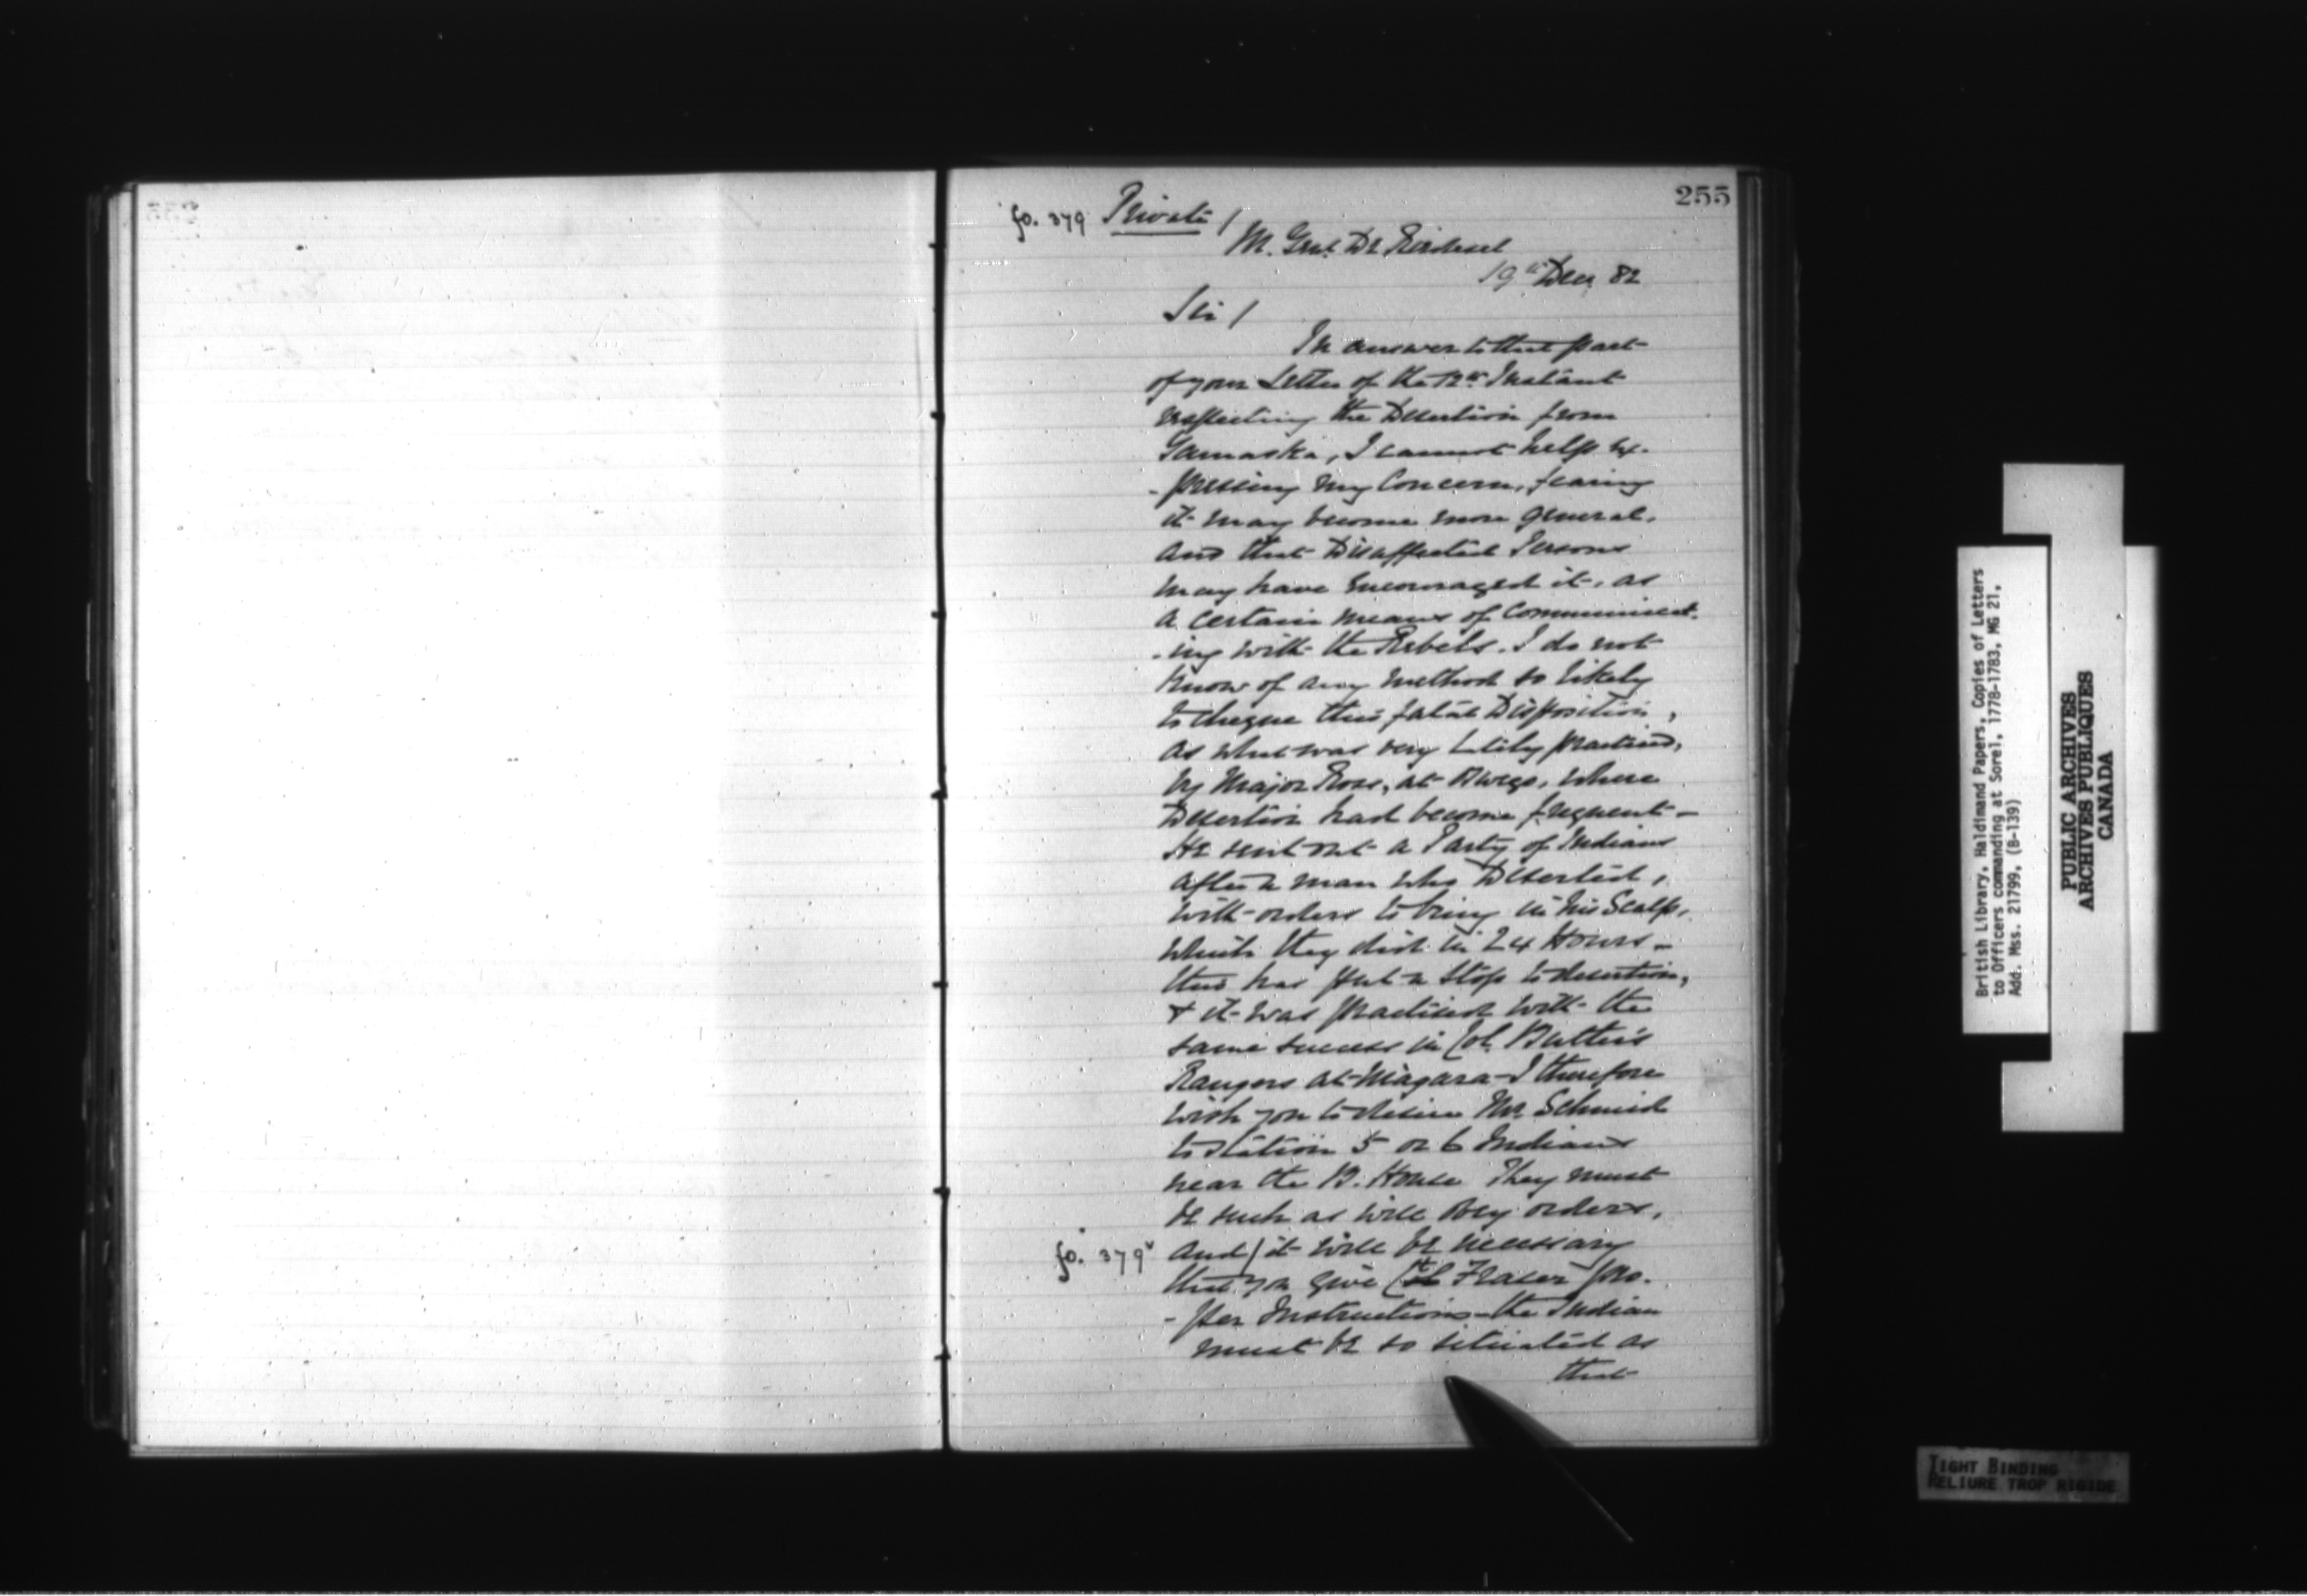 255
fo. 379 Private /
M. Genl. De Riedesel
19th Decr. 82
Sir /
In answer to that part
of your Letter of the 12th Instant
respecting the Desertion from
Yamaska, I cannot help ex-
-pressing my Concern, fearing
it may become more general,
and that Disaffected Persons
may have encouraged it, as
a certain means of Communicat-
-ing with the Rebels. I do not
know of any method so likely
to cheque this fatal Disposition,
as what was very lately practised,
by Major Ross, at Oswego, where
Desertion had become frequent -
He sent out a Party of Indians
after a man who Deserted,
with orders to bring in his Scalp,
which they did in 24 Hours -
this has put a stop to desertion,
& it was practised with the
same success in Col. Butler's
Rangers at Niagara - I therefore
wish you to desire Mr. Schmid
to station 5 or 6 Indians
near the B. House They must
be such as will obey orders,
fo. 379v and / it will be necessary
that you give Fraser pro-
-per Instructions - the Indian
must be so situated as
that
British Library, Haldimand Papers, Copies of Letters
to Officers commanding at Sorel, 1778-1783, MG 21,
Add. Mss. 21799, (B-139)
PUBLIC ARCHIVES
ARCHIVES PUBLIQUES
CANADA
TIGHT BINDING
RELIURE TROP RIGIDE